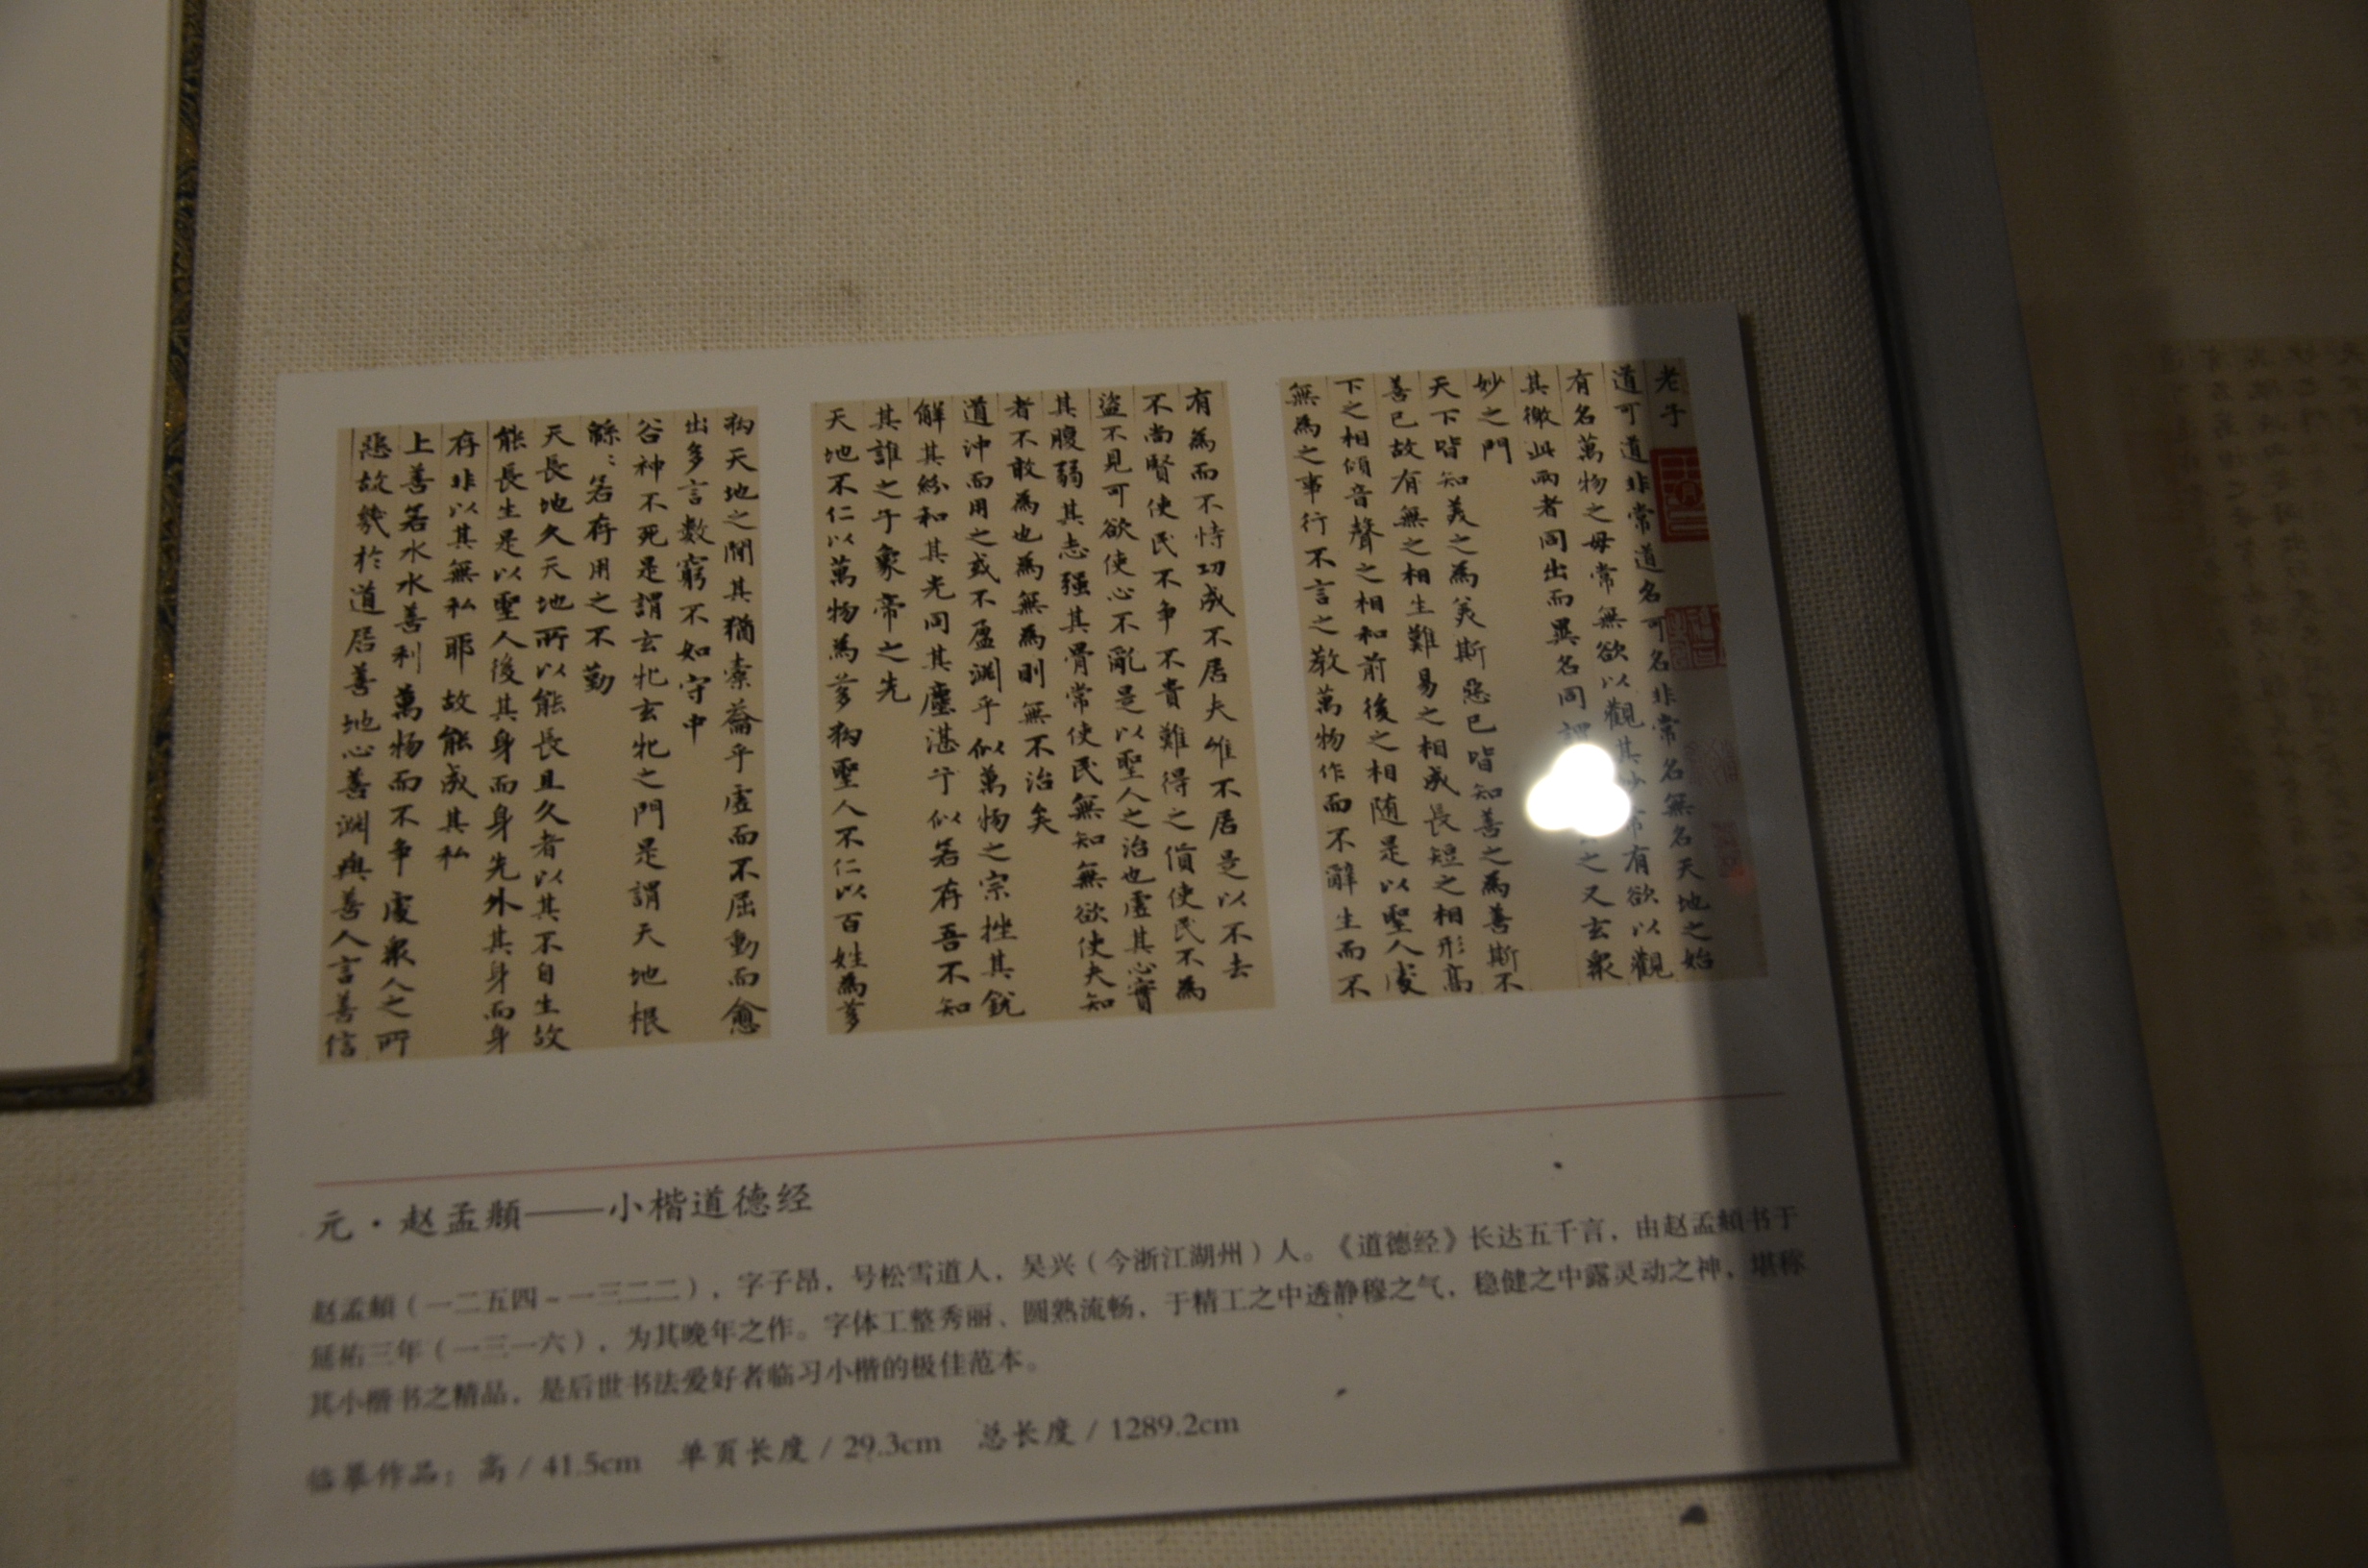 老子
道可道非常道名可名非常名無名天地之始
有名萬物之母常無欲以觀其妙常有欲以觀
其徼此兩者同出而異名同謂之又玄衆
妙之門
天下皆知美之為美斯惡已皆知善之為善斯不
善已故有無之相生難易之相成長短之相形高
下之相傾音聲之相和前後之相随是以聖人處
無為之事行不言之教萬物作而不辭生而不
有為而不恃功成不居夫唯不居是以不去
不尚賢使民不争不貴難得之貨使民不為
盜不見可欲使心不亂是以聖人之治也虛其心實
其腹弱其志强其骨常使民無知無欲使夫知
者不敢為也為無為則無不治矣
道沖而用之或不盈淵乎似萬物之宗挫其銳
解其紛和其光同其塵湛兮似若存吾不知
其誰之子象帝之先
天地不仁以萬物為芻狗聖人不仁以百姓為芻
狗天地之間其猶橐籥乎虛而不屈動而愈
出多言數窮不如守中
谷神不死是謂玄牝玄牝之門是謂天地根
緜:若存用之不勤
天長地久天地所以能長且久者以其不自生故
能長生是以聖人後其身而身先外其身而身
存非以其無私耶故能成其私
上善若水水善利萬物而不争處衆人之所
惡故幾於道居善地心善淵與善人言善信
元·赵孟頫——小楷道德经
赵孟頫（一二五四~一三二二），字子昂，号松雪道人，吴兴（今浙江湖州）人。《道德经》长达五千言，由赵孟頫书于
延祐三年（一三一六），为其晚年之作。字体工整秀丽、圆熟流畅，于精工之中透静穆之气，稳健之中露灵动之神，堪称
其小楷书之精品，是后世书法爱好者临习小楷的极佳范本。
临摹作品：高 / 41.5cm 单页长度 / 29.3cm 总长度 / 1289.2cm